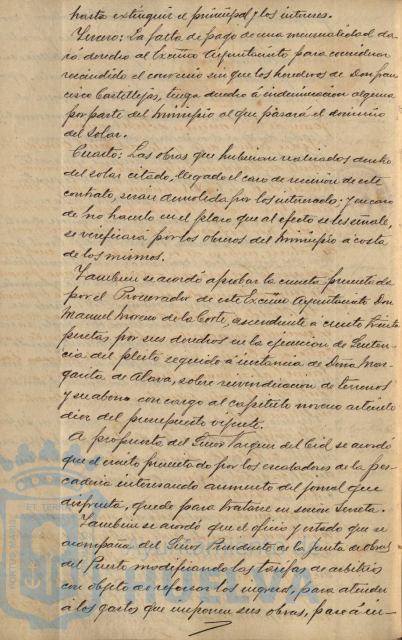 hasta extinguir el principal y los intereses.
Tercero: La falta de pago de una mensualidad da-
rá derecho al Excmo Ayuntamiento para considerar
rescindido el convenio sin que los herederos de Don Fran
cisco Castillejas, tenga derecho á indemnizacion alguna
por parte del Municipio al que pasará el dominio
del solar.
Cuarto: Las obras que hubieren realizados dentro
del solar citado, llegado el caso de rescision de este
contrato, serán demolida por los interesados; y en caso
de no hacerlo en el plazo que al efecto se les señale,
se verificará por los obreros del Municipio a costa
de los mismos.
Tambien se acordó aprobar la cuenta presentada
por el Procurador de este Excmo Ayuntamiento Don
Manuel Moreno de la Corte, ascendiente á ciento treinta
pesetas por sus derechos en la ejecucion de Senten-
cia del pleito seguido á instancia de Doña Mar-
garita de Alava, sobre reivindicacion de terrenos
y su abono con cargo al capitulo noveno articulo
diez del presupuesto vigente.
A propuesta del Señor Vazquez del Cid se acordó
que el escrito presentado por los celadores de la pes-
cadería interesando aumento del jornal que
disfruta, quede para tratarse en sesion secreta.
Tambien se acordó que el oficio y estado que se
acompaña del Señor Presidente de la Junta de Obras
del Puerto modificando las tarifas de arbitrios
con objeto de reforzar los ingresos, para atender
a los gastos que imponen sus obras, pase á in-